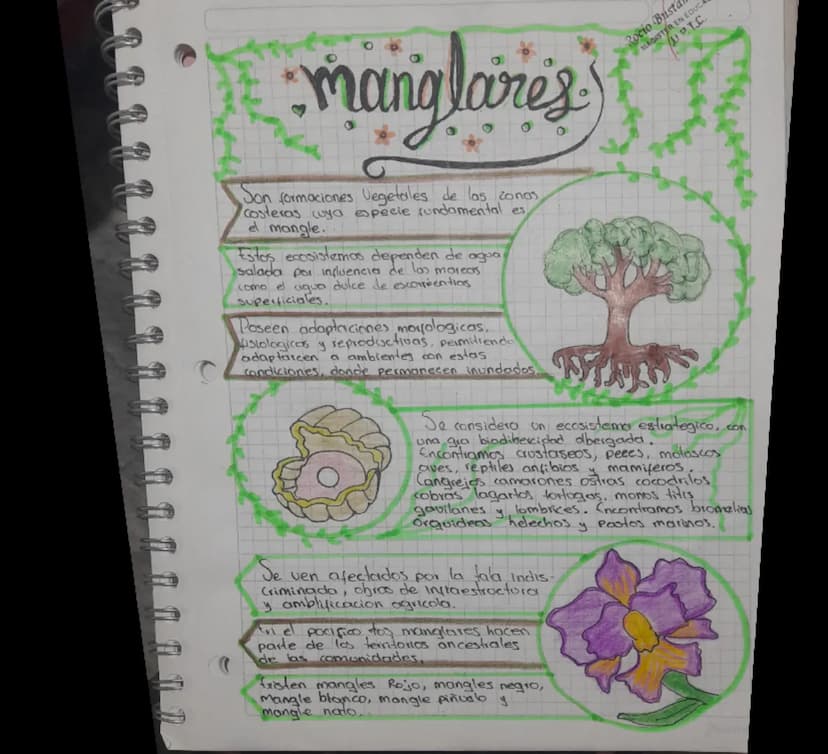 Rocio Bristan
manglares
Son formaciones Vegetales de las zonas
costeras cuya especie fundamental es
el mangle.
Estos ecosistemas dependen de agua
salada por influencia de las mareas
como el agua dulce de escorrentias
superficiales.
Poseen adaptaciones morfologicas,
fisiologicas y reproductivas, permitiendo
adaptarcen a ambientes con estas
condiciones, donde permanecen inundados.
Se considera un ecosistema estrategico, con
una gra biodibercidad albergada.
Encontramos crustaseos, peces, moluscos
aves, reptiles anfibios y mamiferos.
Cangrejos camarones ostras cocodrilos
cobras lagartos tortugas, monos titis
gavilanes y lombrices. Encontramos bromelias
orquideas helechos y pastos marinos.
Se ven afectados por la tala indis-
criminada, obras de infraestructura
y amblificacion agricola.
En el pacifico los manglares hacen
parte de los territorios ancestrales
de las comunidades.
Existen mangles Rojo, mangles negro,
Mangle blanco, mangle piñuelo y
mangle nato.